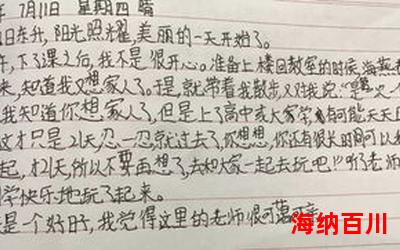 7月11日 星期四 晴
日东升,阳光照耀,美丽的一天开始了。
下了课之后,我不是很开心。准备上楼回教室的时候,海燕
来,知道我又想家人了。于是,就带着我散步又对我说:"
我知道你想家人了,但是上了高中或大学有可能天天
这才只是21天,忍一忍就过去了,你想想,你还有很长时间可以和
起,才21天,所以不要再想了,去和大家一起去玩吧!"听了老师
学快乐地玩了起来。
是一个好日子,我觉得这里的老师很可
海纳百川